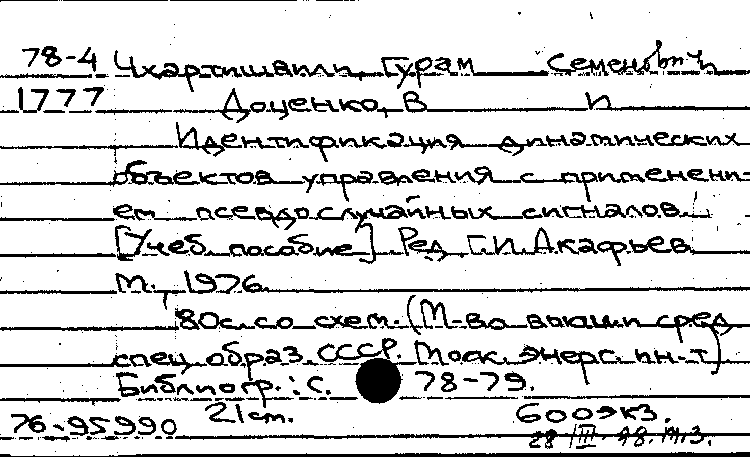 78-4 Чхартишвили, Гурам Семенович
1777 Доценко, В И
Идентификация динамических
объектов управления с применени-
ем псевдослучайных сигналов.
[Учеб. пособие] Ред. Г.И. Акафьев
М., 1976.
80с. со схем. (М-во высш. и сред.
спец. образ. СССР. Моск. энерг. ин-т)
Библиогр.: с. 78-79.
76-95990 21 см. 600экз.
28/III-78. М.З.